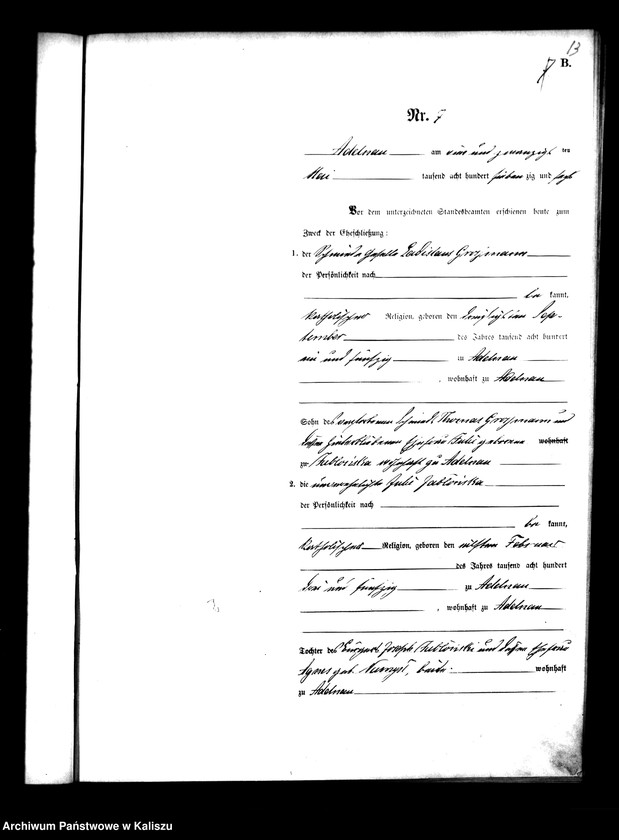 13
B.
Nr. 7
Adelnau am vier und zwanzigst ten
Mai tausend acht hundert sieben zig und sechs
Vor dem unterzeichneten Standesbeamten erschienen heute zum
Zweck der Eheschließung:
1. der Schmiede Geselle Ladislaus Grozmann
der Persönlichkeit nach
be kannt,
katholischer Religion, geboren den Sep-
tember des Jahres tausend acht hundert
ein und fünfzig zu Adelnau
, wohnhaft zu Adelnau
Sohn des verstorbenen Schmied Thomas Grozmann und
dessen hinterbliebenen Ehefrau Julie geborene wohnhaft
zu wohnhaft zu Adelnau
2. die unverehelichte Julie
der Persönlichkeit nach
be kannt,
katholischer Religion, geboren den elften Februar
des Jahres tausend acht hundert
drei und fünfzig zu Adelnau
, wohnhaft zu Adelnau
Tochter des Bürgers Joseph und dessen Ehefrau
Agnes geb. beide wohnhaft
zu Adelnau
Archiwum Państwowe w Kaliszu